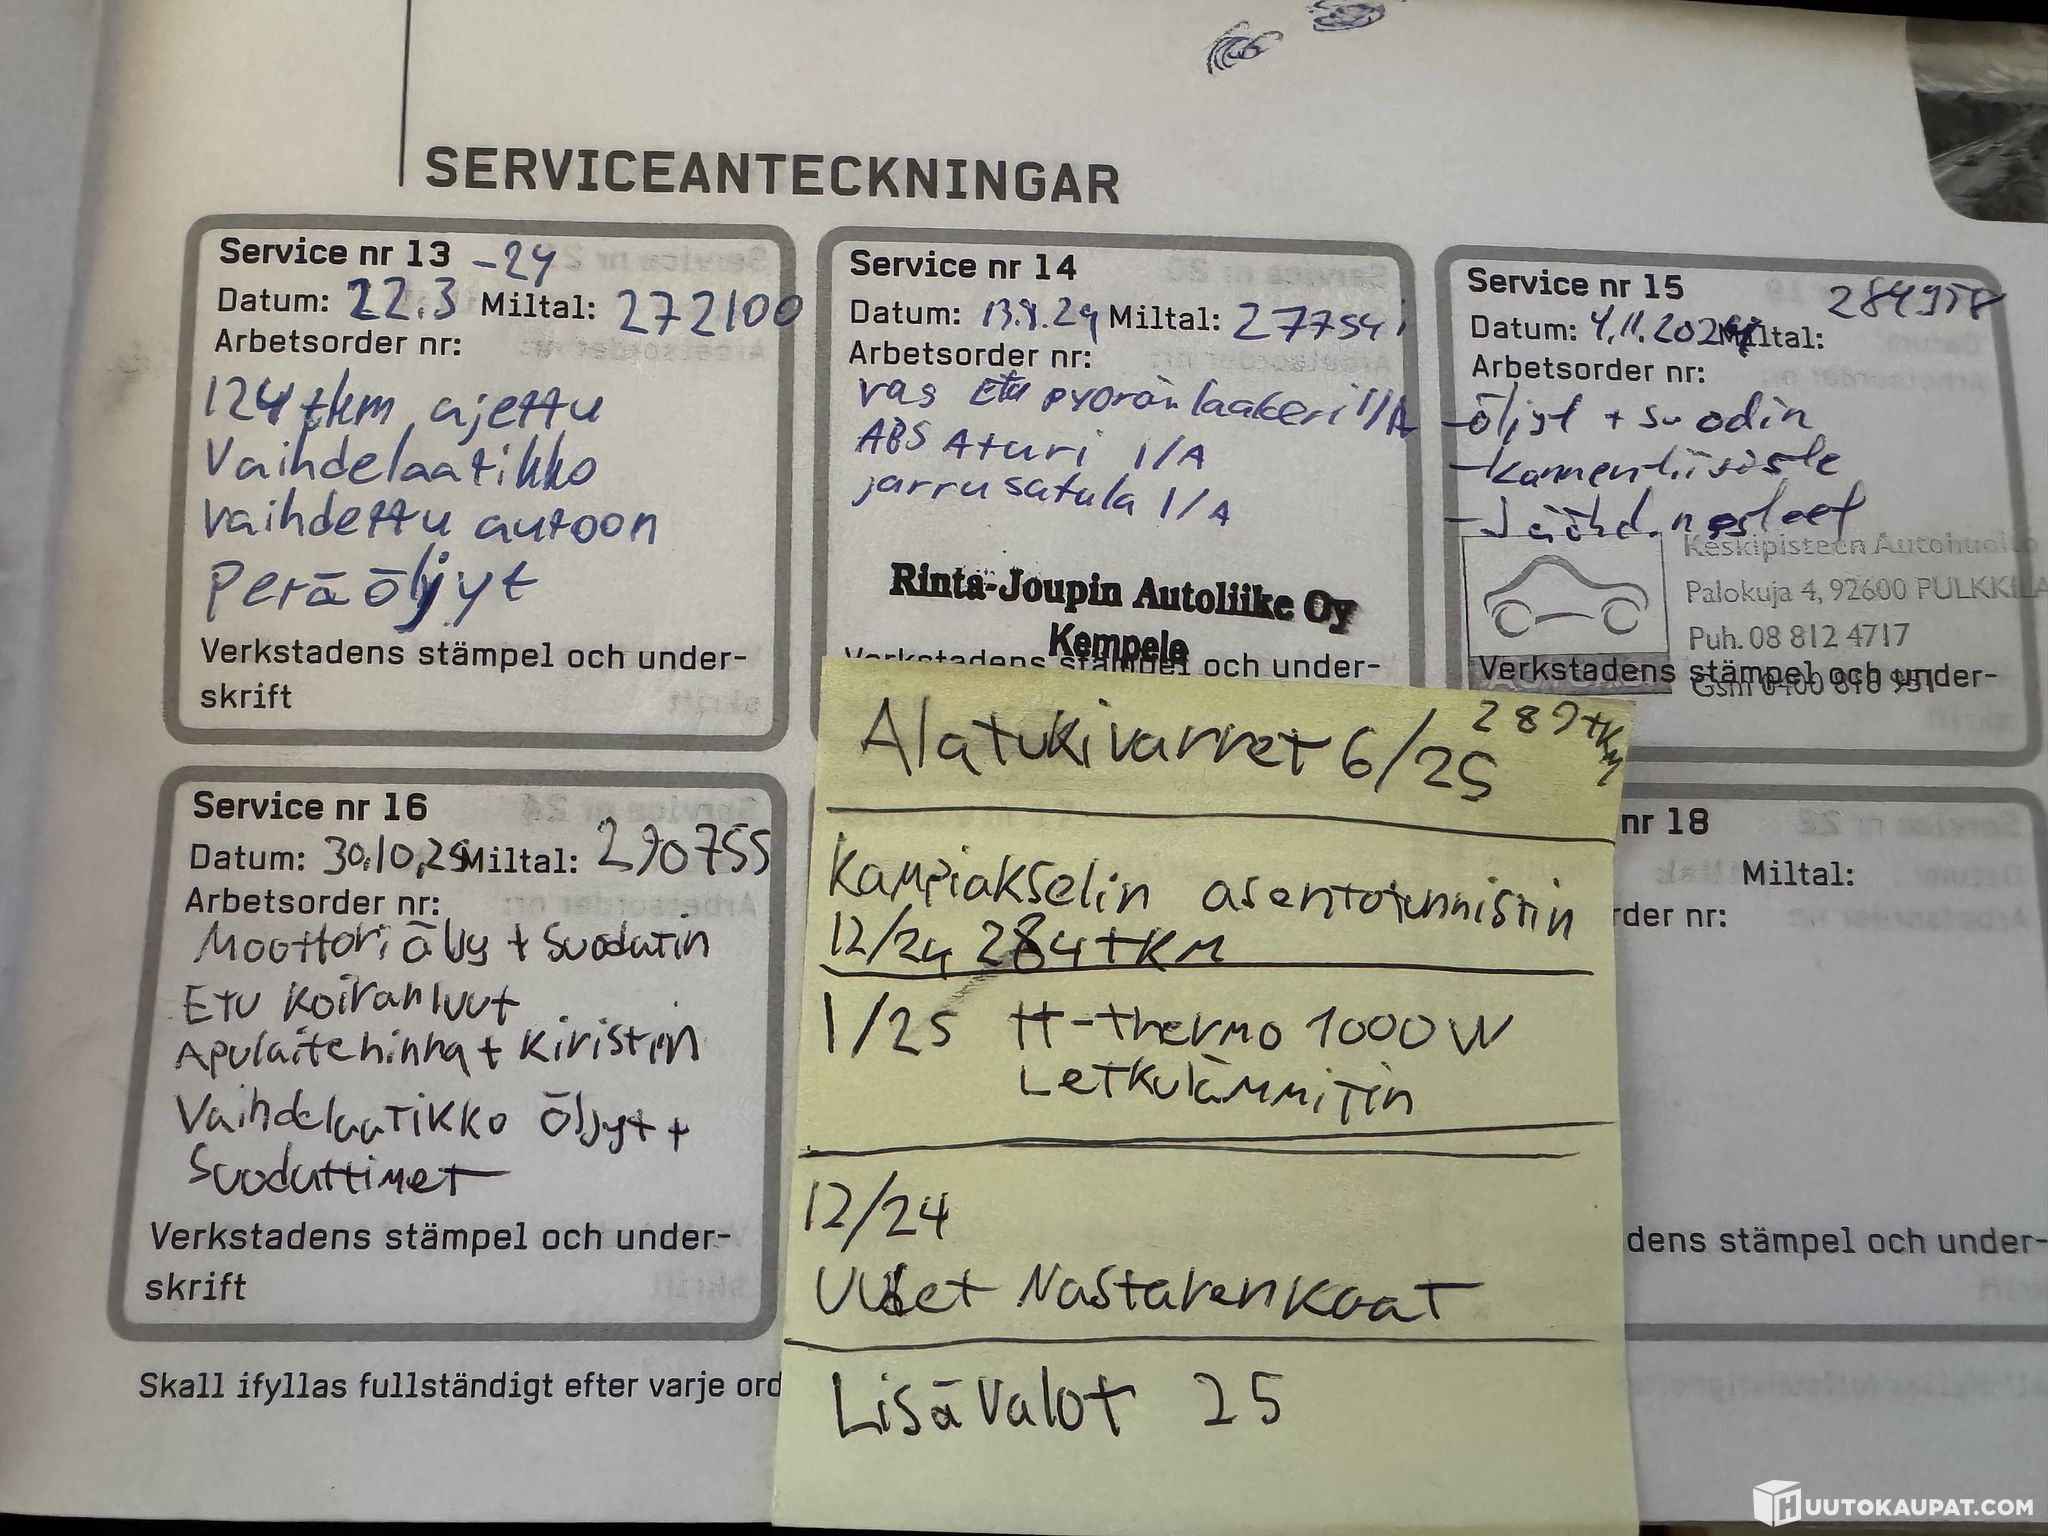 SERVICEANTECKNINGAR
Service nr 13 -24
Datum: 22.3 Miltal: 272100
Arbetsorder nr:
124 tkm ajettu
Vaihdelaatikko
vaihdettu autoon
Perä öljyt
Verkstadens stämpel och under-
skrift
Service nr 14
Datum: Miltal:
Arbetsorder nr:
vas etu pyörän laakeri 1/A
ABS Aturi 1/A
jarrusatula 1/A
Rinta-Joupin Autoliike Oy
Kempele
Verkstadens stämpel och under-
Service nr 15 284958
Datum: 4.11.2024 Miltal:
Arbetsorder nr:
-öljyt + suodin
-kannentiiviste
-Jäähd.nesteet
Keskipisteen Autohuolto
Palokuja 4, 92600 PULKKILA
Puh. 08 812 4717
Verkstadens stämpel och under-
Gsm 0400 818 951
Service nr 16
Datum: 30.10.25 Miltal: 290755
Arbetsorder nr:
Moottori öljy + Suodatin
Etu koiranluut
Apulaitehihna + Kiristin
Vaihdelaatikko öljyt +
Suoduttimet
Verkstadens stämpel och under-
skrift
Alatukivarret 6/25 289tkm
Kampiakselin asentotunnistin
12/24 284tKM
1/25 H-thermo 1000W
Letkulämmitin
12/24
Uudet Nastarenkaat
Lisävalot 25
nr 18
Miltal:
rder nr:
dens stämpel och under-
Skall ifyllas fullständigt efter varje ord
HUUTOKAUPAT.COM